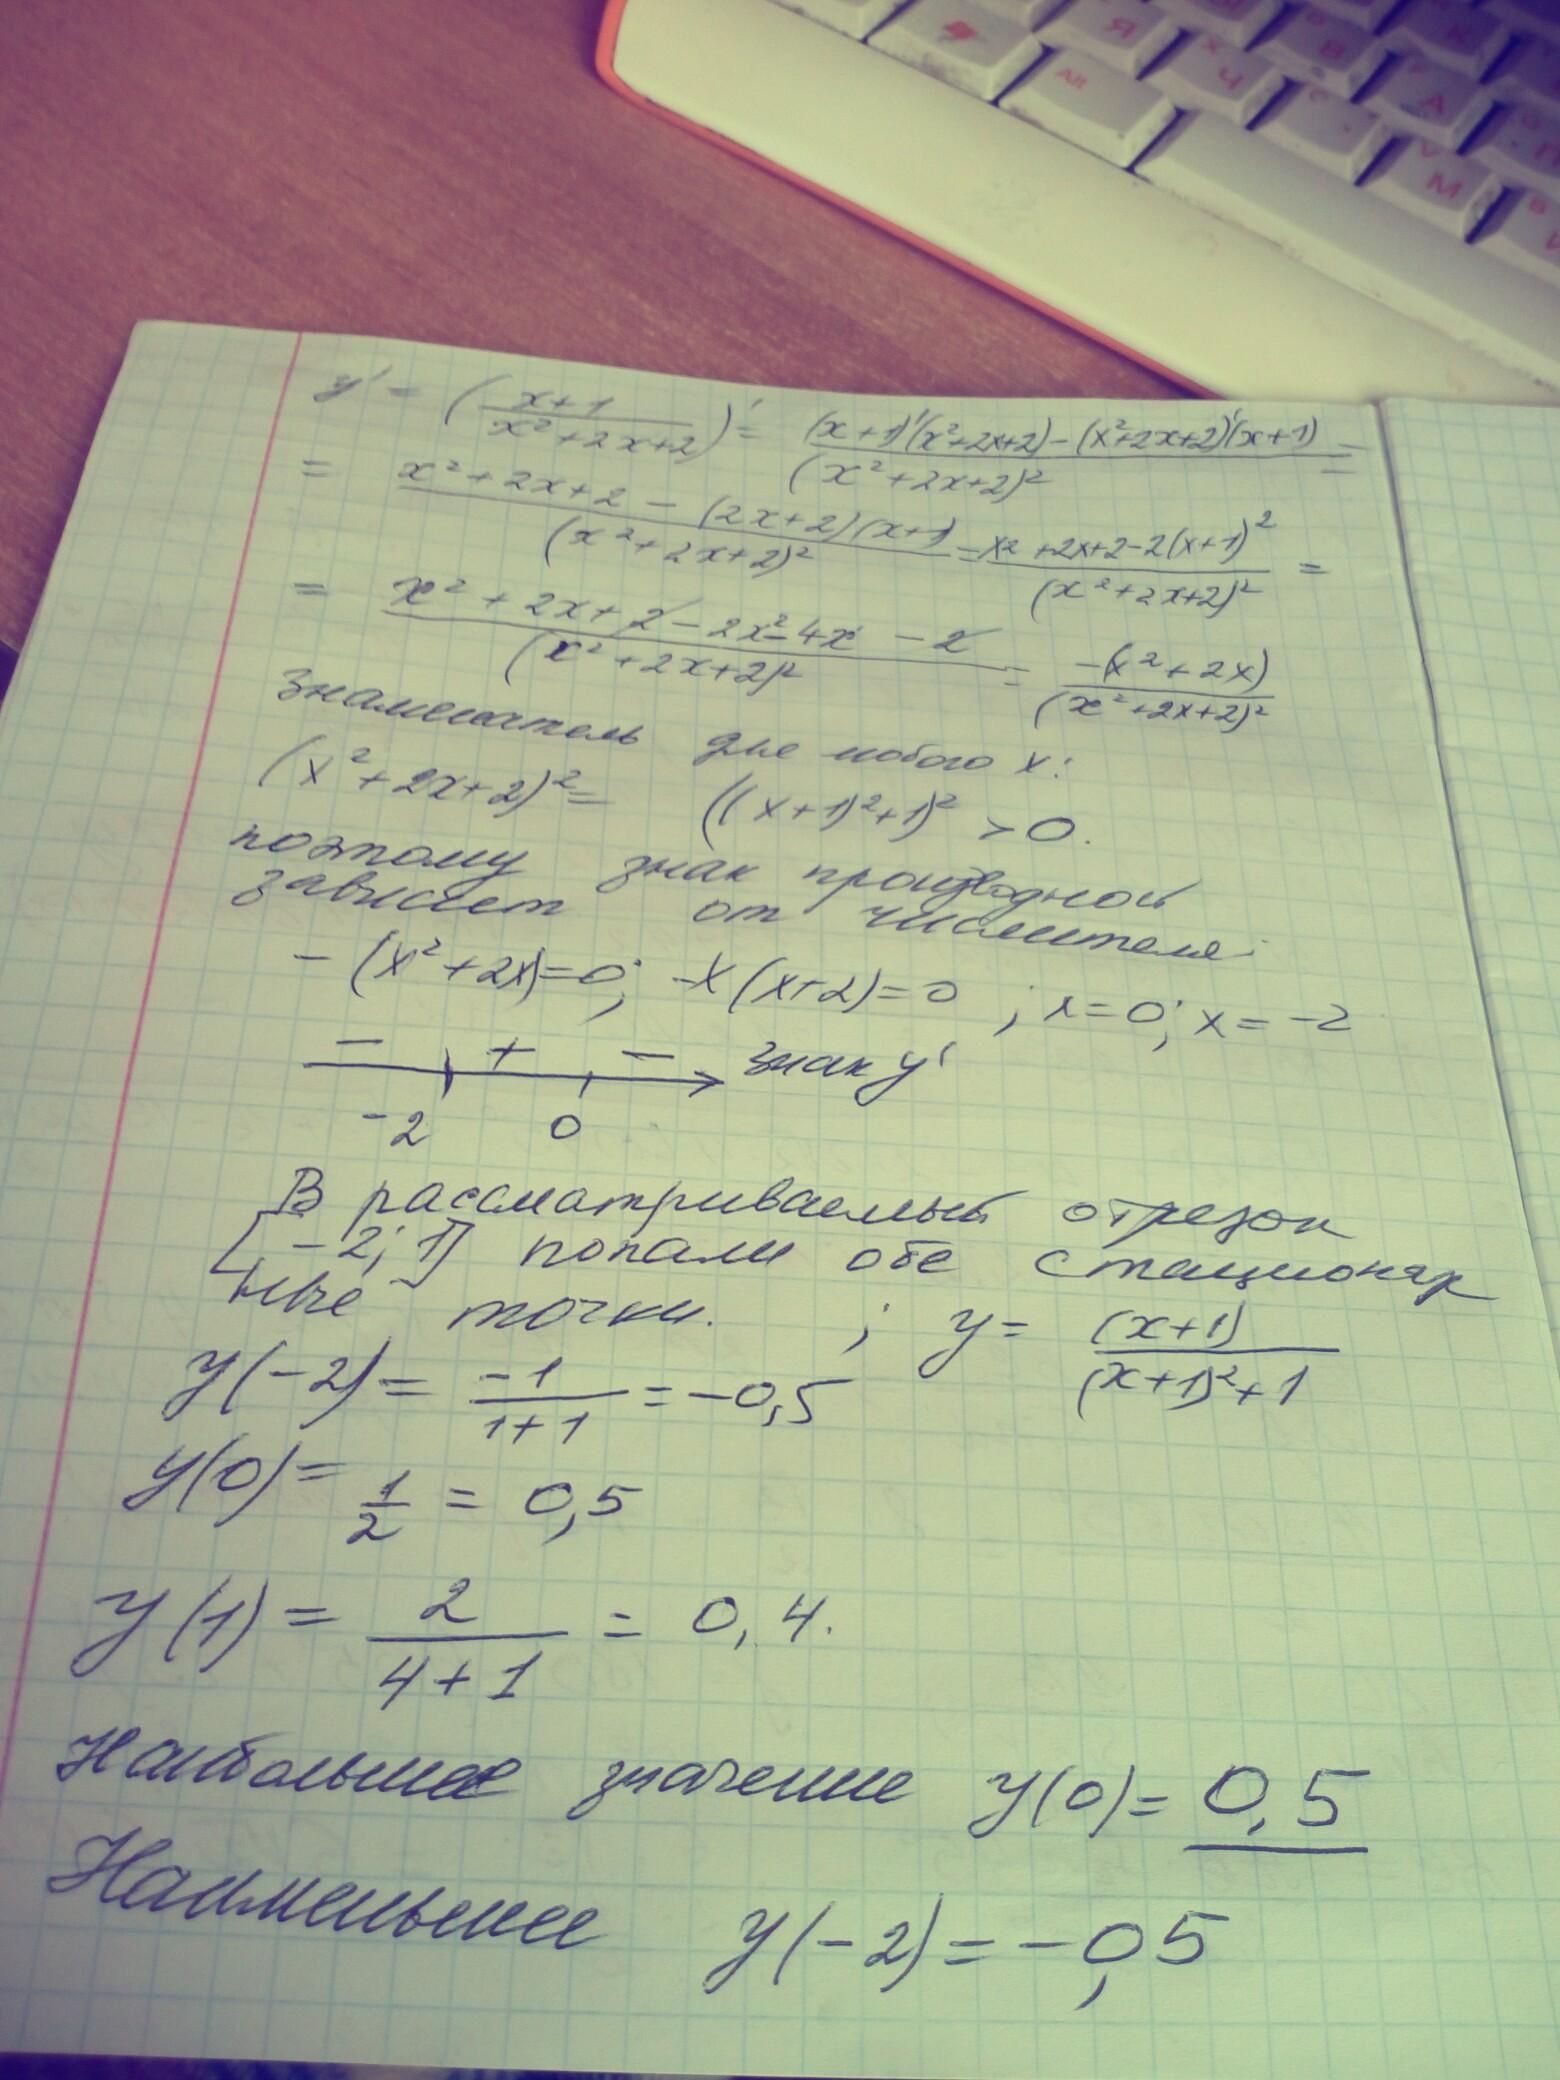 Я
Ч
Alt
А
М
y' = (x+1/x²+2x+2)' = (x+1)'(x²+2x+2)-(x²+2x+2)'(x+1)/(x²+2x+2)² =
= x²+2x+2-(2x+2)(x+1)/(x²+2x+2)² = x²+2x+2-2(x+1)²/(x²+2x+2)² =
= x²+2x+2-2x²-4x-2/(x²+2x+2)² = -(x²+2x)/(x²+2x+2)²
Знаменатель для любого x:
(x²+2x+2)² = ((x+1)²+1)² > 0.
поэтому знак производной
зависит от числителя:
-(x²+2x)=0; -x(x+2)=0; x=0; x=-2
- + - знак y'
-2 0
В рассматриваемый отрезок
[-2; 1] попали обе стационар
ные точки. ; y= (x+1)/(x+1)²+1
y(-2)= -1/1+1 = -0,5
y(0)= 1/2 = 0,5
y(1)= 2/4+1 = 0,4.
Наибольшее значение y(0)= 0,5
Наименьшее y(-2)=-0,5